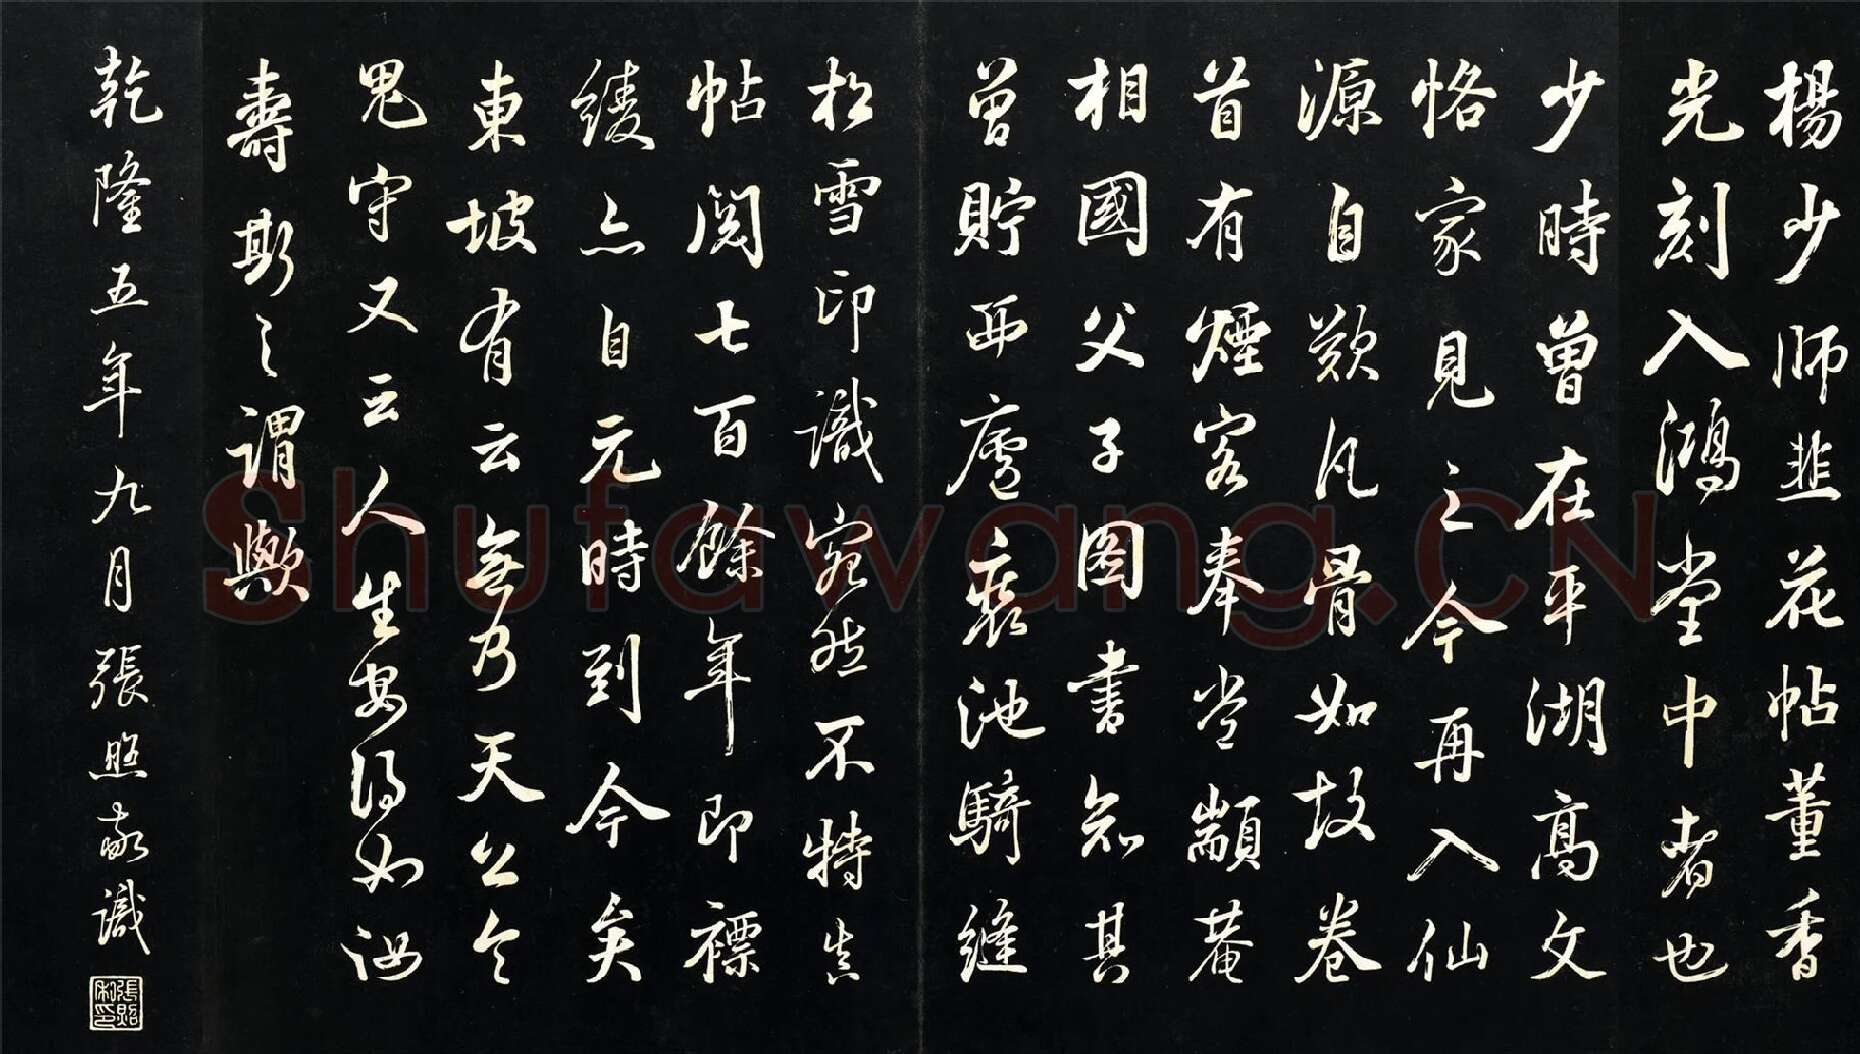 楊少師韭花帖董香
光刻入鴻堂中者也
少時曾在平湖高文
恪家見之今再入仙
源自歎凡骨如故卷
首有煙客奉常顓菴
相國父子图書知其
曾貯西廬裏池騎縫
松雪印識宛然不特真
帖閱七百餘年即褾
綾亦自元時到今矣
東坡有云無乃天公令
鬼守又云人生安得如汝
壽斯之謂歟
乾隆五年九月張照敬識
張照
私印
Shufawang.CN